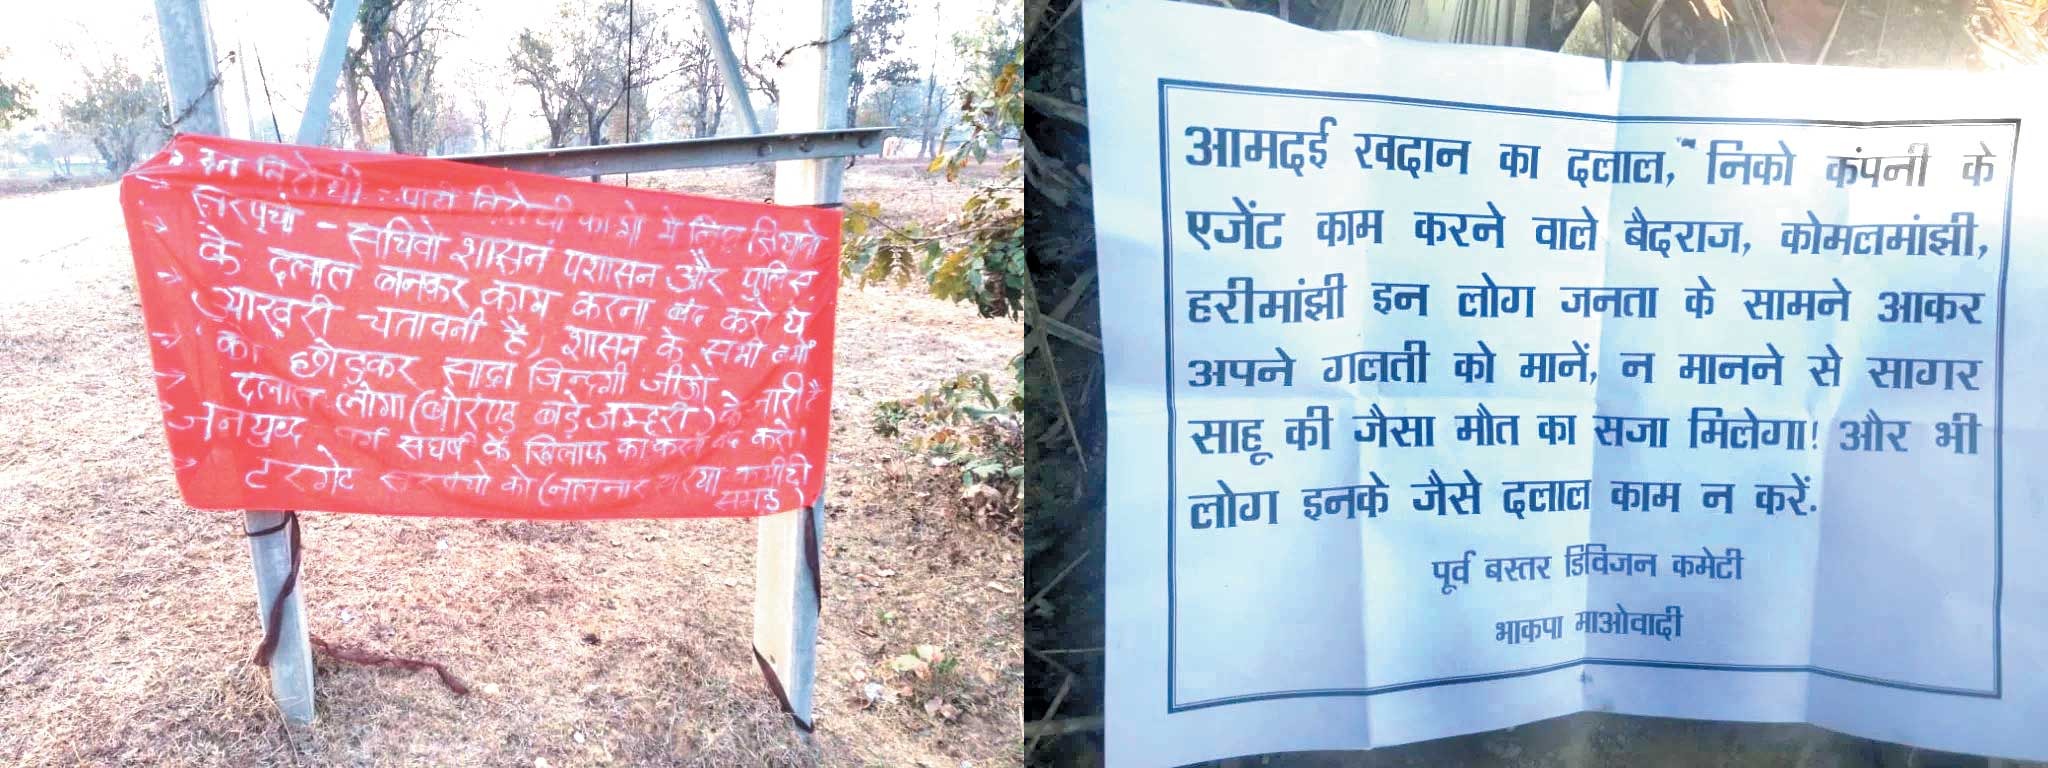 जन विरोधी, पार्टी विरोधी कामों में लिप्त
सरपंचों - सचिवों शासन प्रशासन और पुलिस
के दलाल बनकर काम करना बंद करो ये
आखरी चतावनी है, शासन के सभी कामों
को छोड़कर सादा जिन्दगी जीओ
दलाल लोगों (बोरण्ड बड़ेजम्हरी) के जारी है
जनयुध्द वर्ग संघर्ष के खिलाफ का करना बंद करो।
टारगेट सरपंचो को
आमदई खदान का दलाल, निको कंपनी के
एजेंट काम करने वाले बैदराज, कोमलमांझी,
हरीमांझी इन लोग जनता के सामने आकर
अपने गलती को मानें, न मानने से सागर
साहू की जैसा मौत का सजा मिलेगा! और भी
लोग इनके जैसे दलाल काम न करें.
पूर्व बस्तर डिविजन कमेटी
भाकपा माओवादी